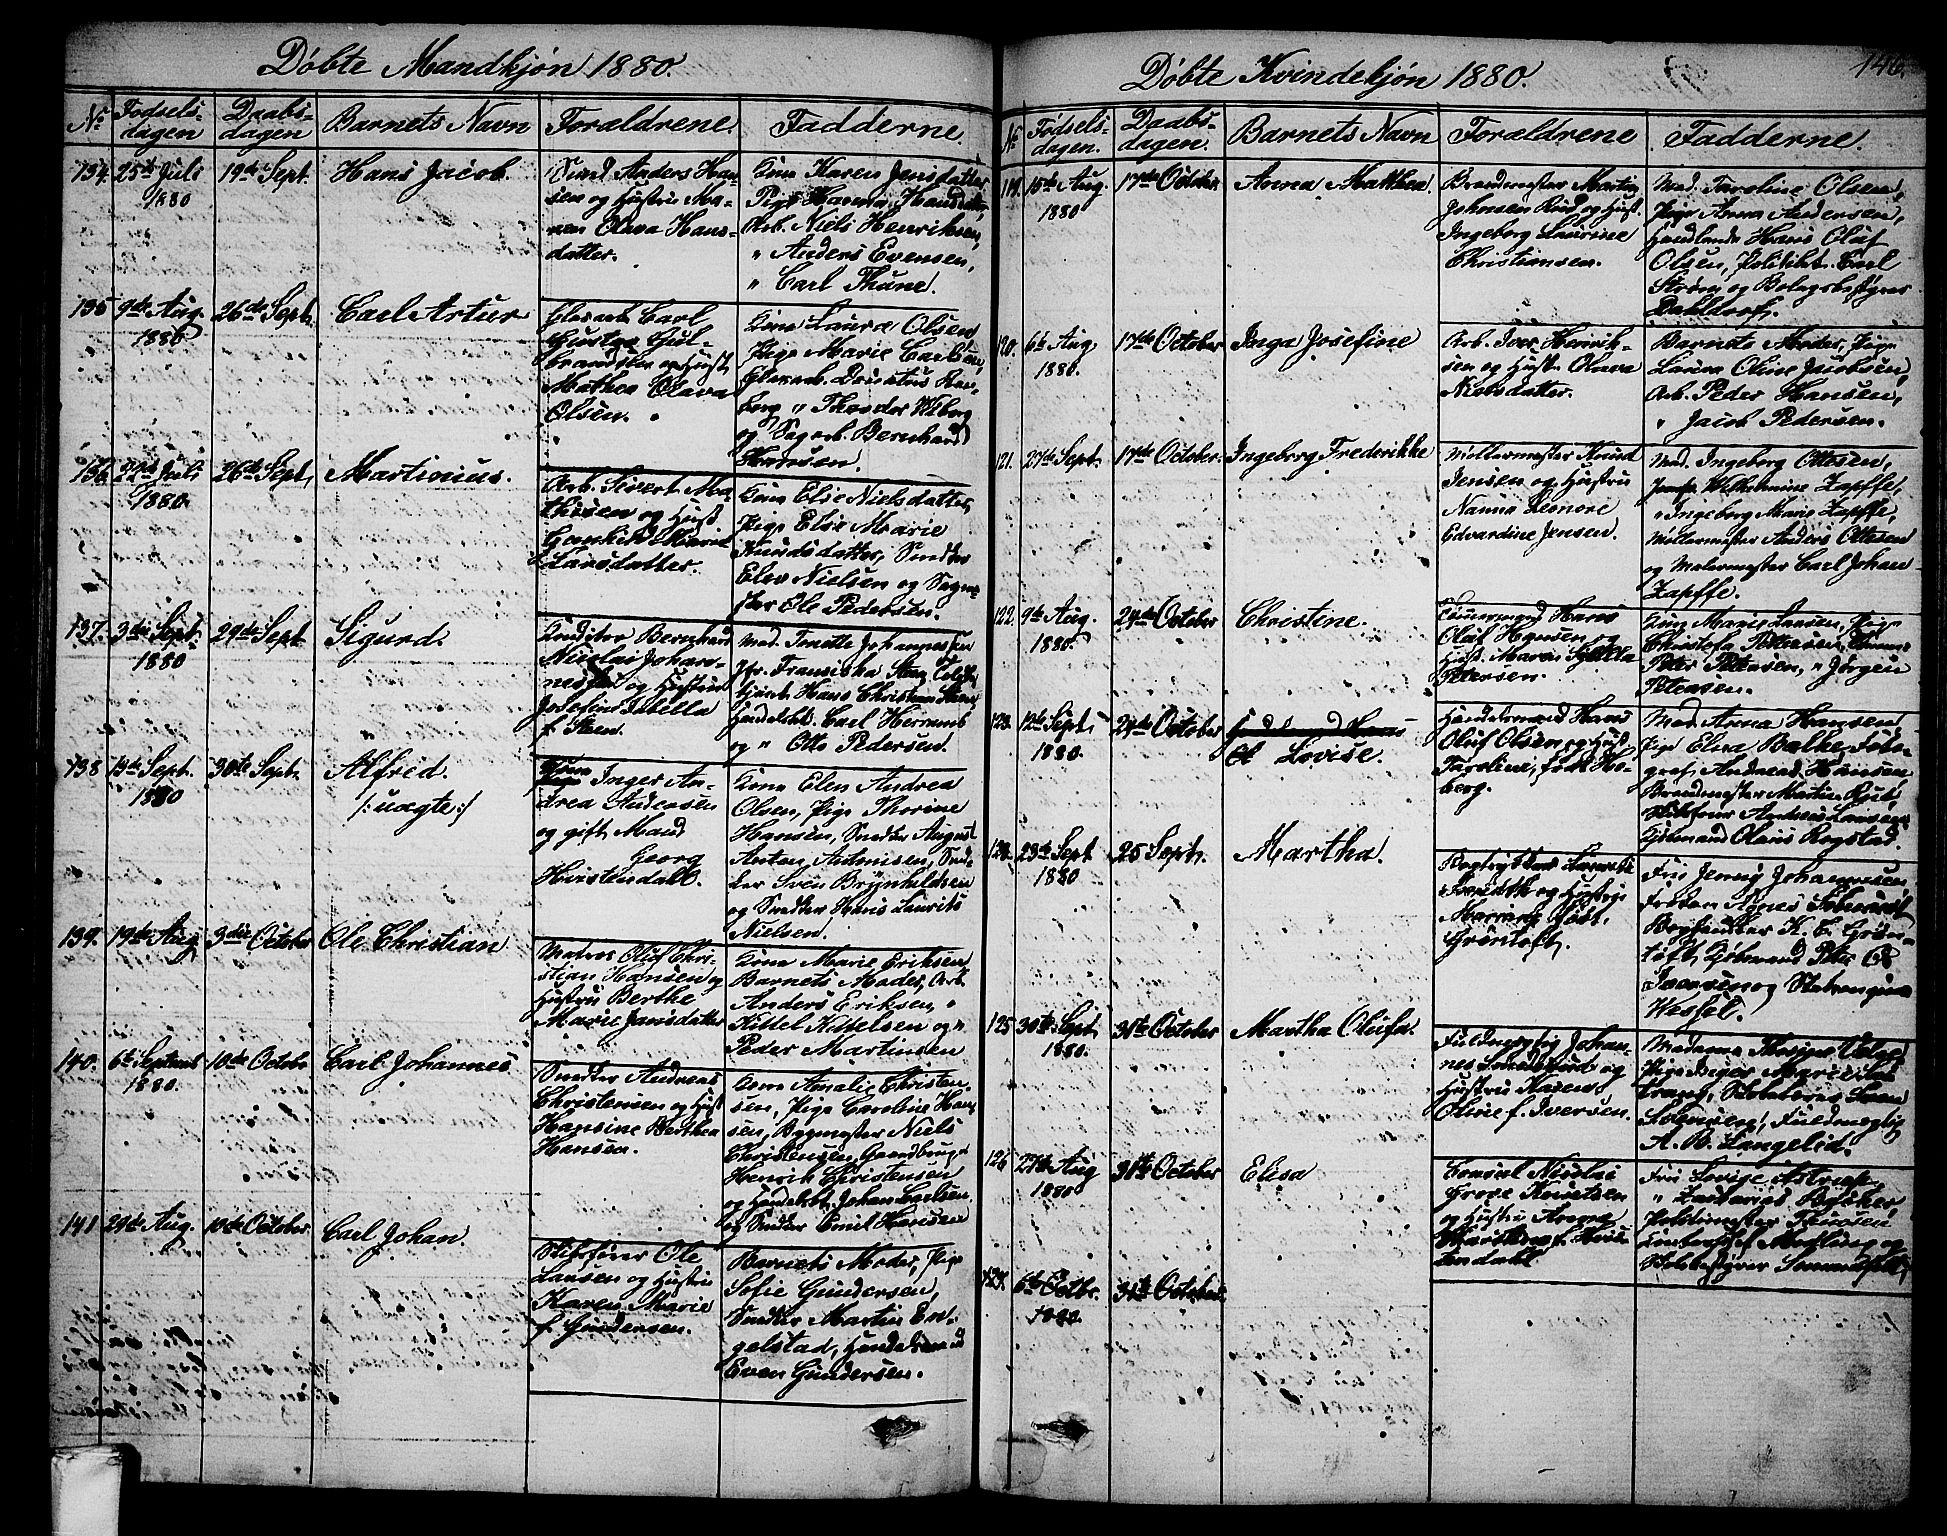 Døbte Mandkjøn 1880.
No Fødsels-dagen Daabs-dagen Barnets Navn Forældrene. Fadderne.
134. 25de Juli 1880 19de Sept. Hans Jacob.
Smed Anders Han-
sen og Hustru Ma-
ren Olava Hans-
datter.
Kone Karen Jensdatter
Pige Hanna Hansdatter,
Arb. Niels Henriksen,
" Anders Evensen,
" Carl Thune.
135 9de Aug. 1880 26de Sept. Carl Artur
Glasarb. Carl
Gustav Gul-
brandsen og Hust
Mathea Olava
Olsen.
Kone Laura Olsen
Pige Marie Carlsen,
Glasarb.
" Theodor Wiborg
og Sagarb. Bernhard
Hansen.
136. 22de Juli 1880. 26de Sept. Martinius.
Arb. Sivert Ma-
thisen og Hust.
Marie
Larsdatter.
Kone Elie Nielsdatter,
Pige Elise Marie
Knudsdatter, Smedter
Elev Nielsen og Sagme-
ster Ole Pedersen.
137. 3die Sept. 1880 29de Sept Sigurd.
Konditor Bernhard
Nicolai Johan-
nesen og Hustru
Josefine Isbella
f. Steen.
Mad. Johannessen
Jfr. Fransiska Steen,
Hans Christian Steen,
Handelsbt. Carl Hermans
og " Otto Pedersen.
138 Sept. 1880 30te Sept. Alfred.
/: uægte :/
Inger An-
drea Andersen
og gift Mand
Georg
Hvistendahl.
Kone Elen Andrea
Olsen, Pige Thorine
Hansen, Smedter August
Anton Antonisen, Smed-
ter Sven Brynhildsen
og Smedter Hans Laurits
Nielsen.
139. 19de Aug 3die October Ole Christian
Matros Oluf Chri-
stian Hansen og
Hustru Berthe
Marie Jansdatter
Kone Marie Eriksen
Barnets Moder, Arb.
Anders Eriksen, "
Kittel Kittelsen og "
Peder Martinsen
140. 6te Septemb 1880. 10de October Carl Johannes
Smedter Andreas
Christensen og Hust
Hansine Berthea
Hansen.
Kone Amalie Christen-
sen, Pige Caroline Han-
sen, Bygmester Niels
Christensen, Gaardbruger
Henrik Christensen
og Handelsbt. Johan Carlsen
og Smedter Emil Hansen
141 29de Aug. 10de October. Carl Johan.
Skibsfører Ole
Larsen og Hustru
Karen Marie
f. Gundersen.
Barnets Moder, Pige
Sofie Gundersen,
Smedter Martin En-
gelstad, Handelsmand
Even Gundersen.
Døbte Kvindekjøn 1880. 146.
No Fødsels-dagen. Daabs-dagen. Barnets Navn Forældrene Fadderne.
119. 15de Aug. 1880 17de October Anna Mathea.
Brandmester Martin
Johnsen Rud og Hust.
Ingeborg Laurine
Christiansen.
Mad. Caroline Olsen,
Pige Anna Andersen,
Handlende Hans Oluf
Olsen, Politibt. Carl
Strøm og Bolagsbestyrer
Dahldorf.
120. 6te Aug 1880. 17de October Inga Josefine
Arb. Iver Henrik-
sen og Hust. Olava
Nielsdatter.
Barnets Moder, Pige
Laura Oline Jacobsen,
Arb. Peder Hansen,
" Jacob Pedersen.
121. 27de Sept. 17de October. Ingeborg Frederikke
Møllermester Knud
Jensen og Hustru
Nanna Lenore
Edvardine Jensen.
Mad. Ingeborg Ottesen,
Jomfr Wilhelmine Zapffe,
" Ingeborg Marie Zapffe,
Møllermester Anders Ottesen
og Malermester Carl Johan
Zapffe.
122. 9de Aug. 1880. 24de October Christine.
Hans
Oluf Hansen og
Hust. Maren
Petersen.
Kone Marie Larsen, Pige
Petersen,
Peter Petersen, " Jørgen
Petersen.
123. 12te Sept. 1880. 24de October Lovise.
Handelsmand Hans
Oluf Olsen og Hust
Caroline, født Ho-
berg.
Mad. Anna Hansen
Pige Elisa Balke, Foto-
graf Andreas Hansen
Brandmester Martin Rud,
Skibsfører Andreas Larsen
Kjøbmand Olaus Rogstad.
124. 23de Sept 1880 25 Sept. Martha.
Bogtrykker
og Hustru
født
Grøntoft.
Fru Jenny Johannesen,
Frøken Agnes
Boghandler K. E. Grøn-
toft, Kjøbmand Peter
Iversen og
Wessel.
125 30te Sept. 1880. 31te October Martha Olufa.
Fuldmægtig Johan-
nes og
Hustru Karen
Oline f. Iversen.
Madame
Pige Inger Marie
Sven
Fuldmægtig
A. B. Langelid.
126 27de Aug 1880 31te October Elisa
Consul Nicolai
Grove Knudtzen
og Hustru Anna
f. Hvis-
tendahl
Fru Lovise Astrup,
"
Politimester
og
127. 6te Octbr. 1880. 31te October.